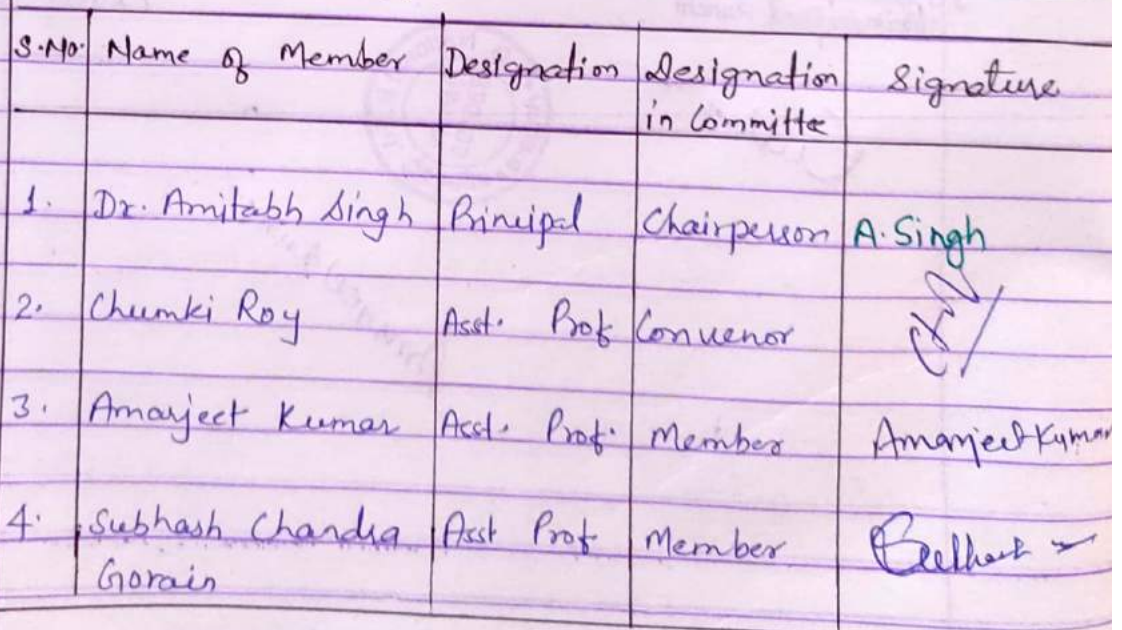 S.No. Name of Member Designation Designation in Committe Signature
1. Dr. Amitabh Singh Principal Chairperson A. Singh
2. Chumki Roy Asst. Prof Convenor
3. Amarjeet Kumar Asst. Prof. Member Amarjeet Kumar
4. Subhash Chandra Gorain Asst Prof Member